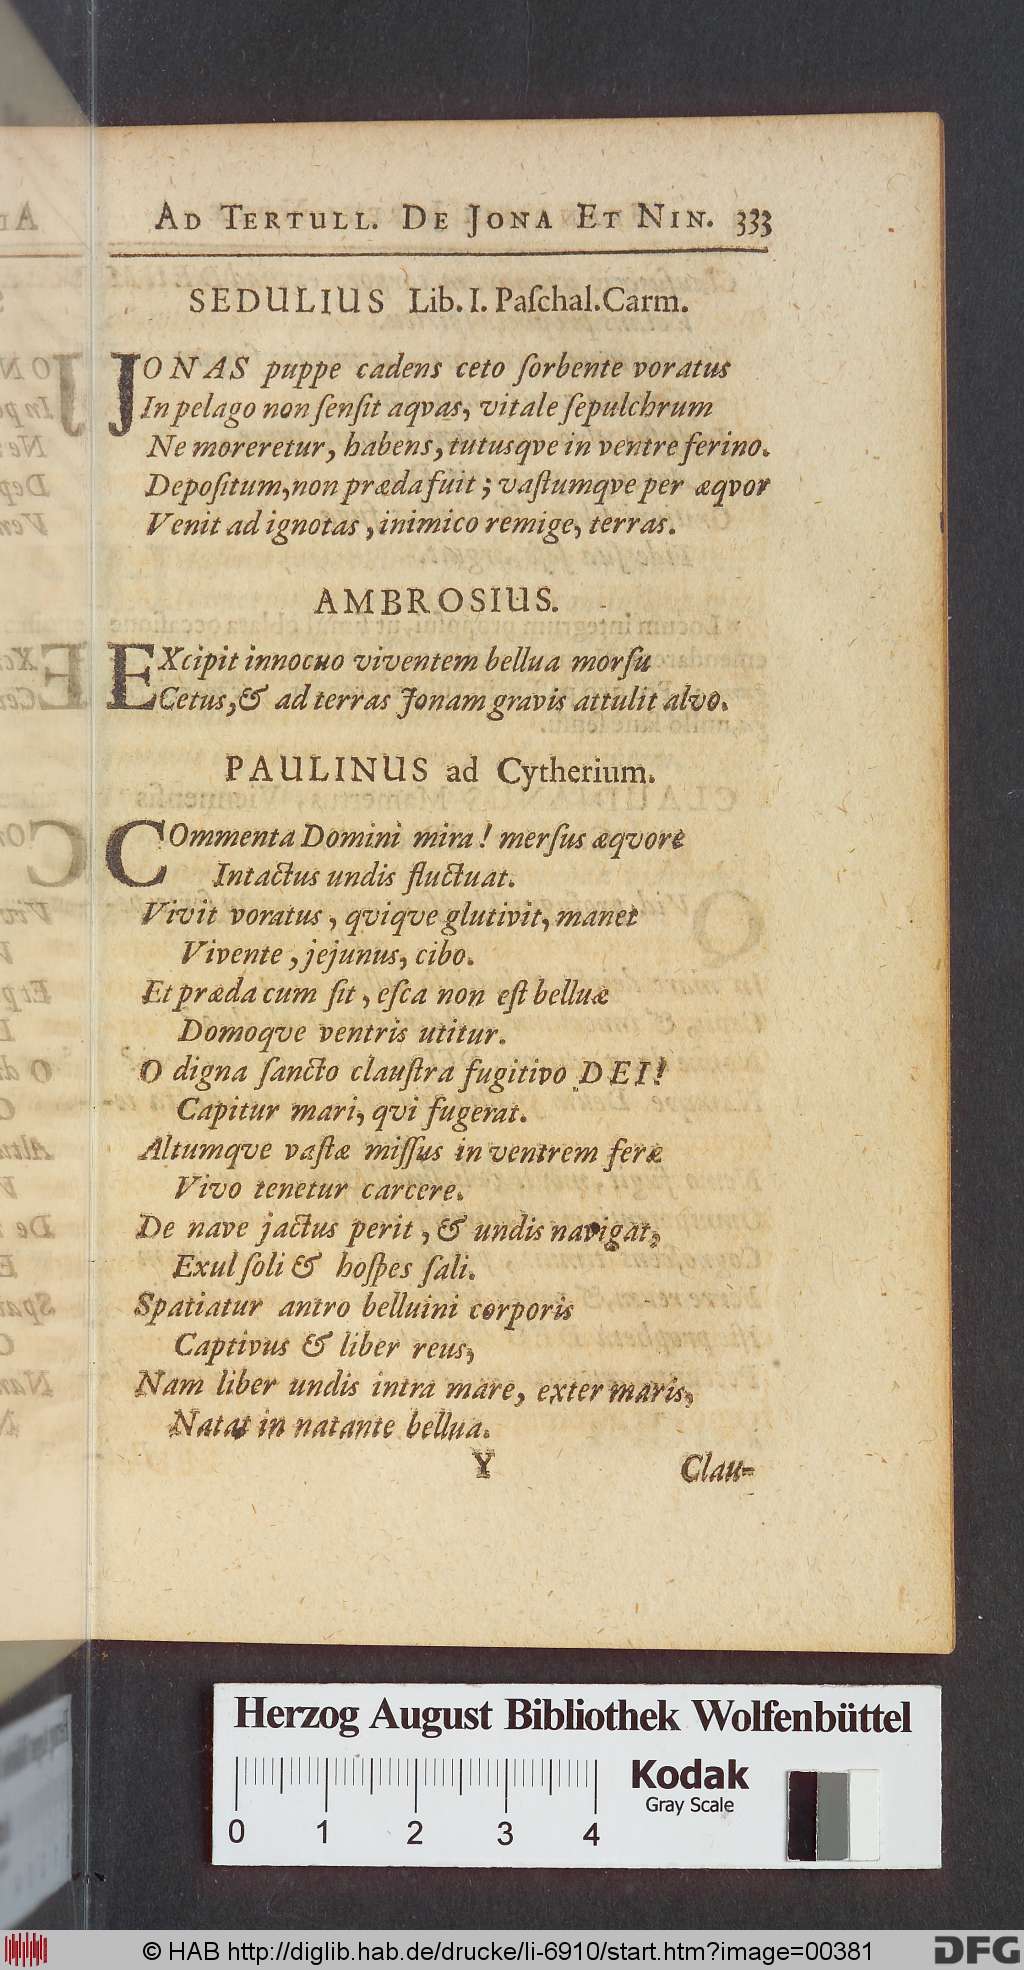 AD TERTULL. DE JONA ET NIN. 333
SEDULIUS Lib. I. Paſchal. Carm.
JONAS puppe cadens ceto ſorbente voratus
In pelago non ſenſit aqvas, vitale ſepulchrum
Ne moreretur, habens, tutusqve in ventre ferino.
Depoſitum, non præda fuit; vaſtumqve per æqvor
Venit ad ignotas, inimico remige, terras.
AMBROSIUS.
EXcipit innocuo viventem bellua morſu
Cetus, & ad terras Jonam gravis attulit alvo.
PAULINUS ad Cytherium.
COmmenta Domini mira! merſus æqvore
Intactus undis fluctuat.
Vivit voratus, qviqve glutivit, manet
Vivente, jejunus, cibo.
Et præda cum ſit, eſca non eſt belluæ
Domoqve ventris utitur.
O digna ſancto clauſtra fugitivo DEI!
Capitur mari, qvi fugerat.
Altumqve vaſtæ miſſus in ventrem feræ
Vivo tenetur carcere.
De nave jactus perit, & undis navigat,
Exul ſoli & hoſpes ſali.
Spatiatur antro belluini corporis
Captivus & liber reus,
Nam liber undis intra mare, exter maris,
Natat in natante bellua.
Y Clau-
Herzog August Bibliothek Wolfenbüttel
0 1 2 3 4
Kodak
Gray Scale
© HAB http://diglib.hab.de/drucke/li-6910/start.htm?image=00381
DFG